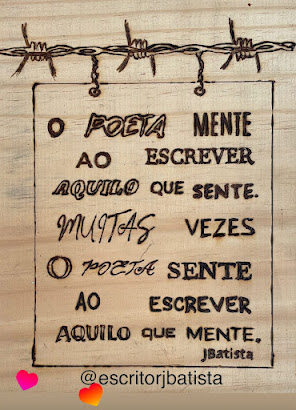 O POETA MENTE
AO ESCREVER
AQUILO QUE SENTE.
MUITAS VEZES
O POETA SENTE
AO ESCREVER
AQUILO QUE MENTE.
JBatista
@escritorjbatista